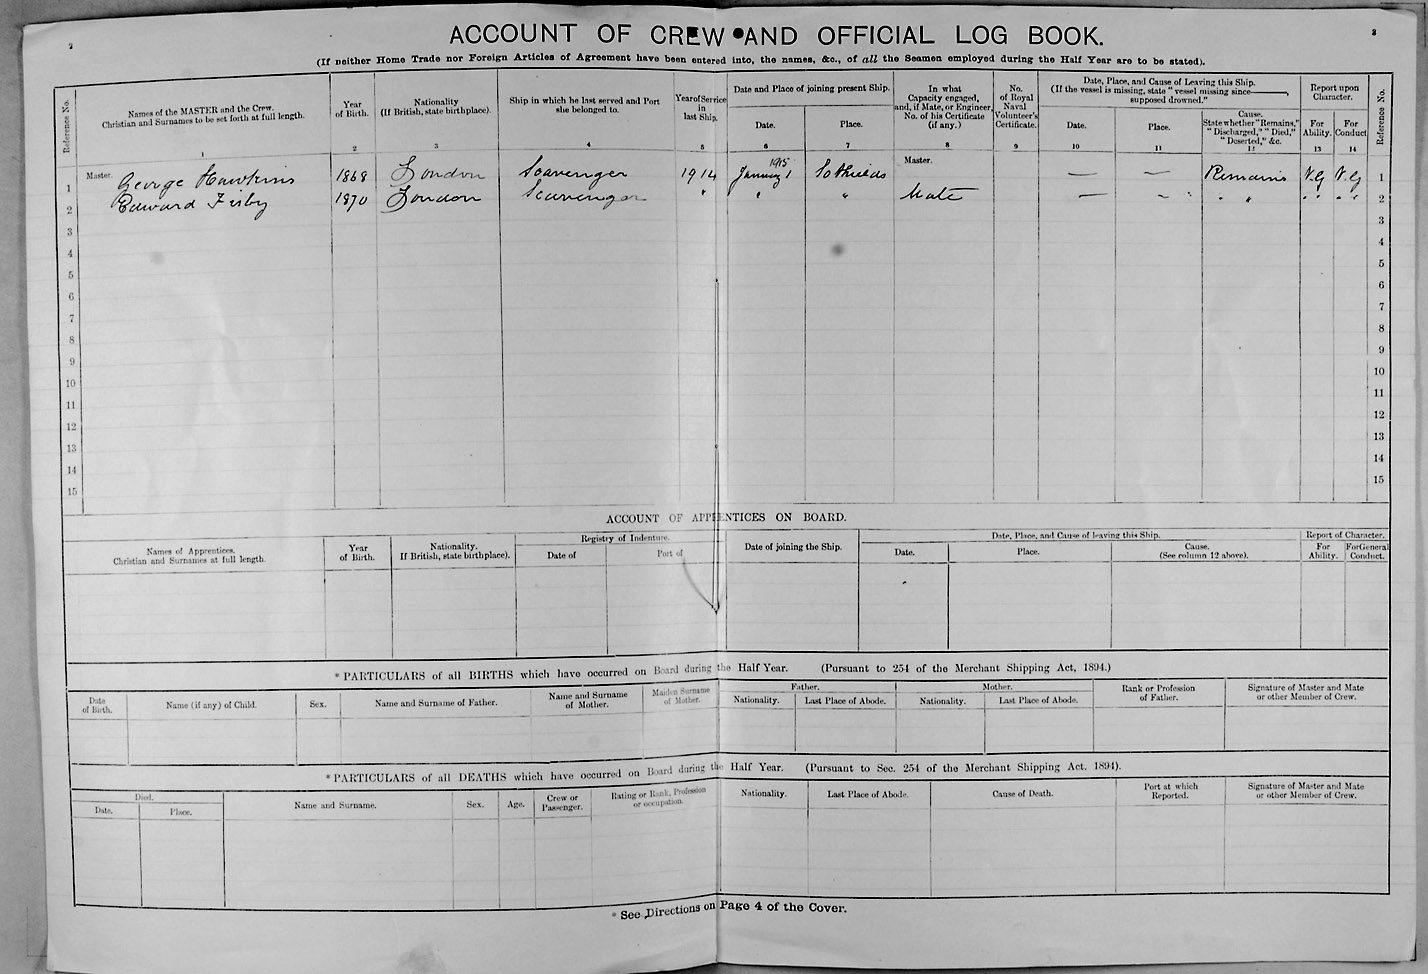 2
3
ACCOUNT OF CREW AND OFFICIAL LOG BOOK.
(If neither Home Trade nor Foreign Articles of Agreement have been entered into, the names, &c., of all the Seamen employed during the Half Year are to be stated).
Reference No.
Names of the MASTER and the Crew.
Christian and Surnames to be set forth at full length.
1
Year
of Birth.
2
Nationality
(If British, state birthplace).
3
Ship in which he last served and Port
she belonged to.
4
Year of Service
in
last Ship.
5
Date and Place of joining present Ship.
Date.
6
Place.
7
In what
Capacity engaged,
and, if Mate, or Engineer,
No. of his Certificate
(if any.)
8
No.
of Royal
Naval
Volunteer's
Certificate.
9
Date, Place, and Cause of Leaving this Ship.
(If the vessel is missing, state "vessel missing since———,
supposed drowned."
Date.
10
Place.
11
Cause.
State whether "Remains,"
"Discharged," "Died,"
"Deserted," &c.
12
Report upon
Character.
For
Ability.
13
For
Conduct
14
Reference No.
1 Master. George Hawkins 1868 London Scavenger 1914 1915 January 1 So Shields Master. — — Remains V.G V.G 1
2 Edward Firby 1870 London Scavenger " " " Mate — — " " " " " " 2
3 3
4 4
5 5
6 6
7 7
8 8
9 9
10 10
11 11
12 12
13 13
14 14
15 15
ACCOUNT OF APPRENTICES ON BOARD.
Names of Apprentices.
Christian and Surnames at full length.
Year
of Birth.
Nationality.
If British, state birthplace).
Registry of Indenture.
Date of
Port of
Date of joining the Ship.
Date, Place, and Cause of leaving this Ship.
Date.
Place.
Cause.
(See column 12 above).
Report of Character.
For
Ability.
For General
Conduct.
* PARTICULARS of all BIRTHS which have occurred on Board during the Half Year. (Pursuant to 254 of the Merchant Shipping Act, 1894.)
Date
of Birth.
Name (if any) of Child.
Sex.
Name and Surname of Father.
Name and Surname
of Mother.
Maiden Surname
of Mother.
Father.
Nationality.
Last Place of Abode.
Mother.
Nationality.
Last Place of Abode.
Rank or Profession
of Father.
Signature of Master and Mate
or other Member of Crew.
* PARTICULARS of all DEATHS which have occurred on Board during the Half Year. (Pursuant to Sec. 254 of the Merchant Shipping Act, 1894).
Died.
Date.
Place.
Name and Surname.
Sex.
Age.
Crew or
Passenger.
Rating or Rank, Profession
or occupation.
Nationality.
Last Place of Abode.
Cause of Death.
Port at which
Reported.
Signature of Master and Mate
or other Member of Crew.
* See Directions on Page 4 of the Cover.